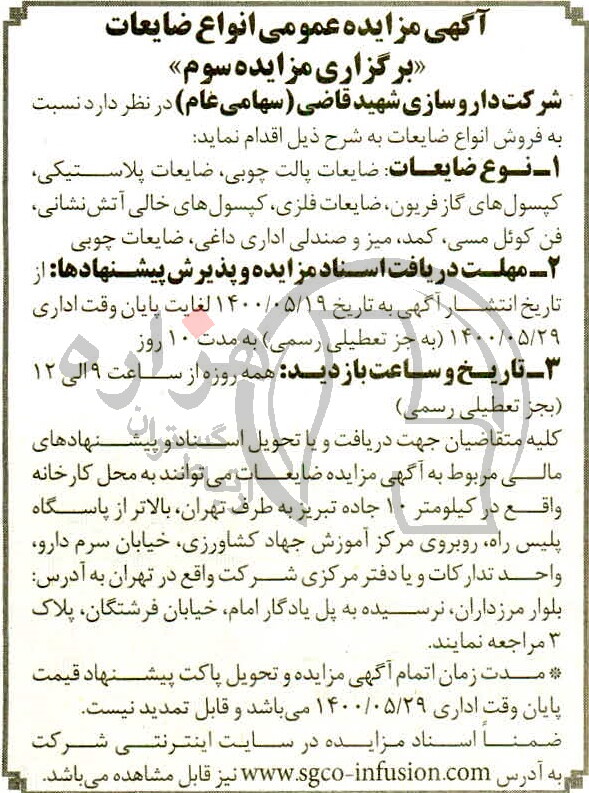 آگهی مزایده عمومی انواع ضایعات
«برگزاری مزایده سوم»
شرکت داروسازی شهید قاضی (سهامی عام) در نظر دارد نسبت
به فروش انواع ضایعات به شرح ذیل اقدام نماید:
۱ـ نوع ضایعات: ضایعات پالت چوبی، ضایعات پلاستیکی،
کپسول‌های گاز فریون، ضایعات فلزی، کپسول‌های خالی آتش‌نشانی،
فن کوئل مسی، کمد، میز و صندلی اداری داغی، ضایعات چوبی
۲ـ مهلت دریافت اسناد مزایده و پذیرش پیشنهادها: از
تاریخ انتشار آگهی به تاریخ ۱۴۰۰/۰۵/۱۹ لغایت پایان وقت اداری
۱۴۰۰/۰۵/۲۹ (به جز تعطیلی رسمی) به مدت ۱۰ روز
۳ـ تاریخ و ساعت بازدید: همه روزه از ساعت ۹ الی ۱۲
(بجز تعطیلی رسمی)
کلیه متقاضیان جهت دریافت و یا تحویل اسناد و پیشنهادهای
مالی مربوط به آگهی مزایده ضایعات می‌توانند به محل کارخانه
واقع در کیلومتر ۱۰ جاده تبریز به طرف تهران، بالاتر از پاسگاه
پلیس راه، روبروی مرکز آموزش جهاد کشاورزی، خیابان سرم دارو،
واحد تدارکات و یا دفتر مرکزی شرکت واقع در تهران به آدرس:
بلوار مرزداران، نرسیده به پل یادگار امام، خیابان فرشتگان، پلاک
۳ مراجعه نمایند.
* مدت زمان اتمام آگهی مزایده و تحویل پاکت پیشنهاد قیمت
پایان وقت اداری ۱۴۰۰/۰۵/۲۹ می‌باشد و قابل تمدید نیست.
ضمناً اسناد مزایده در سایت اینترنتی شرکت
به آدرس www.sgco-infusion.com نیز قابل مشاهده می‌باشد.
هزاره
گستران